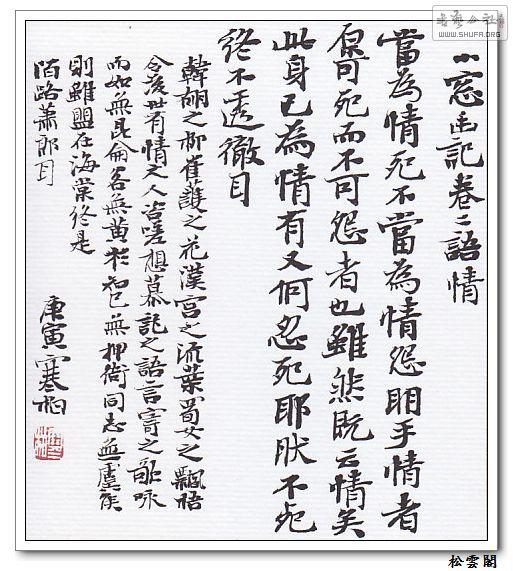 书法公社
WWW.SHUFA.ORG
小窓幽記卷二語情
當為情死不當為情怨明乎情者
原可死而不可怨者也雖然既云情矣
此身已為情有又何忍死耶肰不死
終不透徹耳
韓翃之柳崔護之花漢宮之流葉蜀女之飄梧
令後世有情之人咨嗟想慕託之語言寄之歌咏
而奴無昆侖客無黃衫知己無押衙同志無虞侯
則雖盟在海棠終是
陌路蕭郎耳
庚寅寒柏
松雲閣